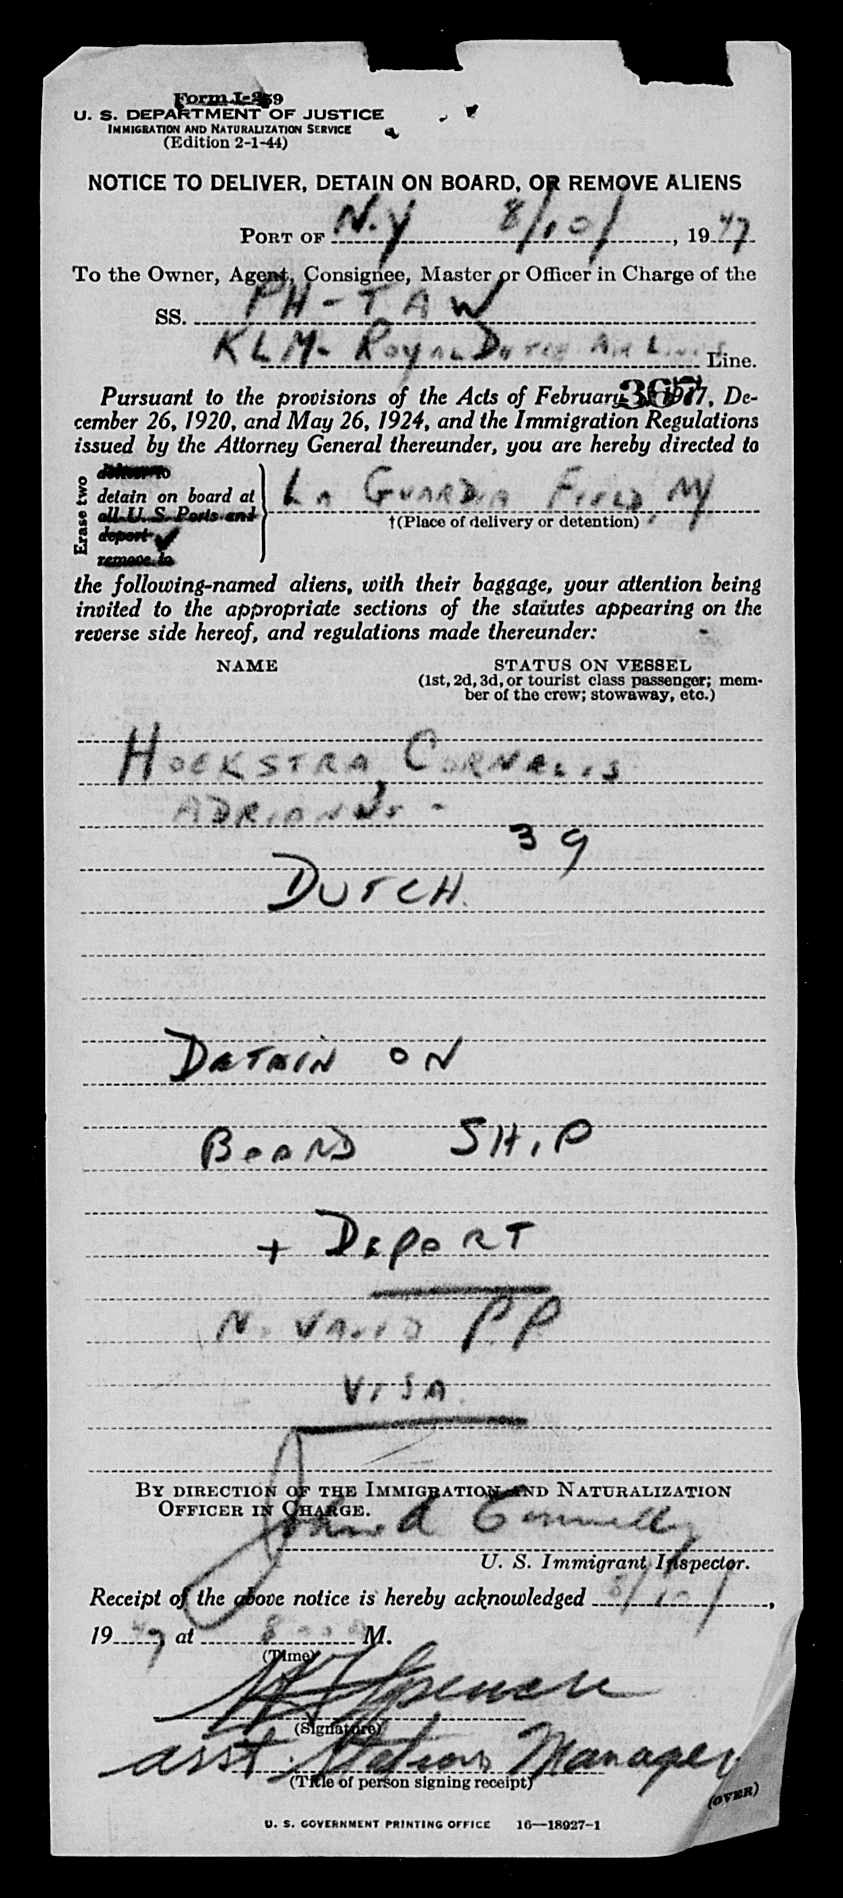 Form I-259
U. S. DEPARTMENT OF JUSTICE
IMMIGRATION AND NATURALIZATION SERVICE
(Edition 2-1-44)
NOTICE TO DELIVER, DETAIN ON BOARD, OR REMOVE ALIENS
PORT OF N.Y 8/10/, 1947
To the Owner, Agent, Consignee, Master or Officer in Charge of the
SS. PH-TAW
KLM- ROYAL DUTCH AIR LINES Line.
367
Pursuant to the provisions of the Acts of February 5, 1917, De-
cember 26, 1920, and May 26, 1924, and the Immigration Regulations
issued by the Attorney General thereunder, you are hereby directed to
Erase two
deliver to
detain on board at
all U. S. Ports and
deport
remove to
LA GUARDIA FIELD, NY
†(Place of delivery or detention)
the following-named aliens, with their baggage, your attention being
invited to the appropriate sections of the statutes appearing on the
reverse side hereof, and regulations made thereunder:
NAME STATUS ON VESSEL
(1st, 2d, 3d, or tourist class passenger; mem-
ber of the crew; stowaway, etc.)
HOEKSTRA, CORNELIS
ADRIANUS -
39
DUTCH.
DETAIN ON
BOARD SHIP
+ DEPORT
NO VALID P.P
VISA
BY DIRECTION OF THE IMMIGRATION AND NATURALIZATION
OFFICER IN CHARGE.
John A Connelly
U. S. Immigrant Inspector.
Receipt of the above notice is hereby acknowledged 8/10/,
1947 at 800 M.
(Time)
Spencer
(Signature)
asst. Station Manager
(Title of person signing receipt)
(OVER)
U. S. GOVERNMENT PRINTING OFFICE 16—18927-1